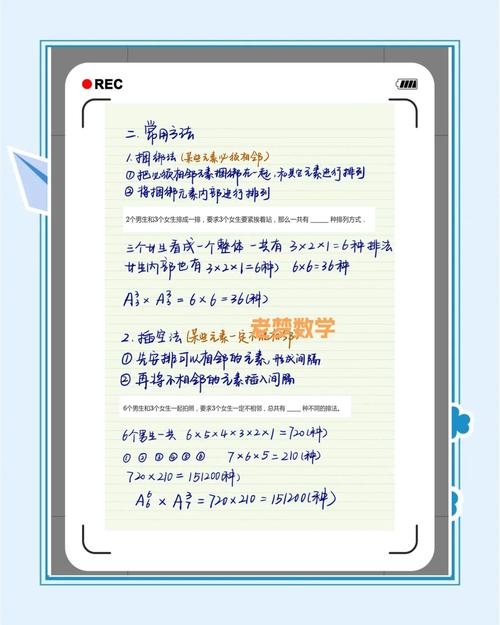 REC
二.常用方法
1.捆绑法(某些元素必须相邻)
①把必须相邻元素捆绑在一起,和其它元素进行排列
②将捆绑元素内部进行排列
2个男生和3个女生排成一排,要求3个女生要紧挨着站,那么一共有 ____ 种排列方式.
三个女生看成一个整体 一共有 3×2×1=6种排法
女生内部也有 3×2×1=6(种) 6×6=36种
A₃³ × A₃³ = 6×6 = 36(种)
老梦数学
2.插空法(某些元素一定不能相邻)
①先安排可以相邻的元素,形成间隔
②再将不相邻的元素插入间隔
6个男生和3个女生一起拍照,要求3个女生一定不相邻,总共有 ____ 种不同的排法。
6个男生一共 6×5×4×3×2×1=720(种)
①②③④⑤⑥ 7×6×5=210(种)
720×210=151200(种)
A₆⁶ × A₇³ = 720×210 = 151200(种)